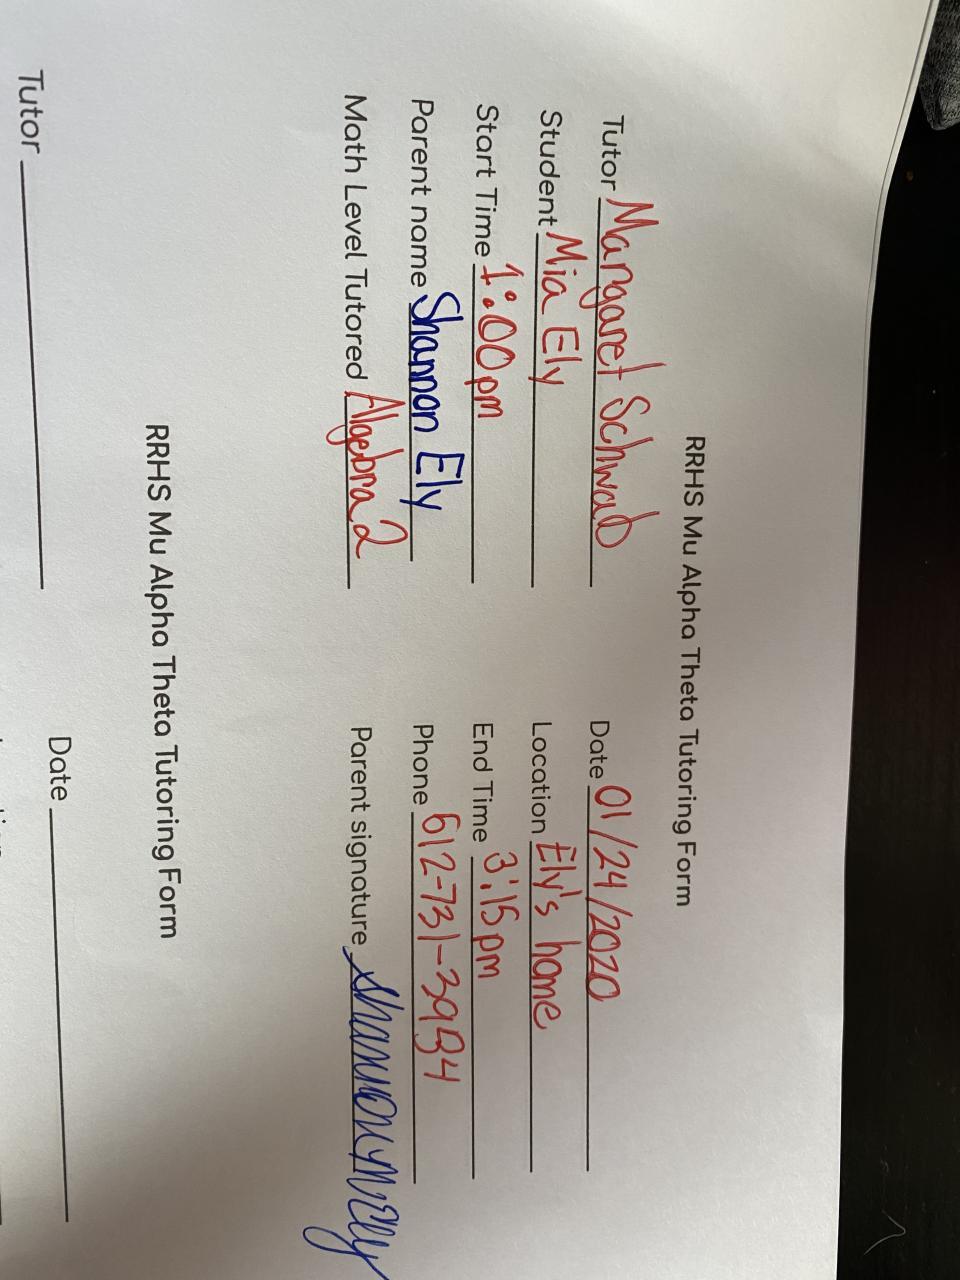 RRHS Mu Alpha Theta Tutoring Form
Tutor Margaret Schwab Date 01/24/2020
Student Mia Ely Location Ely's home
Start Time 1:00pm End Time 3:15pm
Parent name Shannon Ely Phone 612-731-3954
Math Level Tutored Algebra 2 Parent signature Shannon M Ely
RRHS Mu Alpha Theta Tutoring Form
Tutor Date